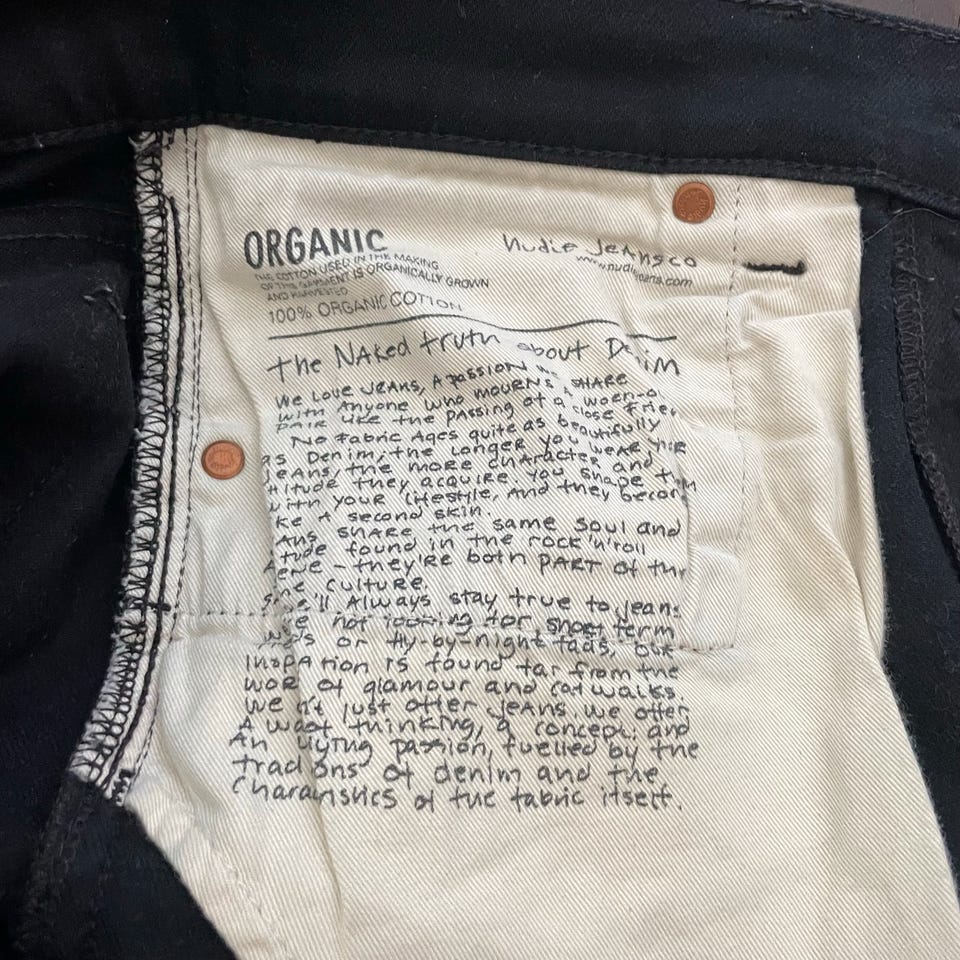 ORGANIC
THE COTTON USED IN THE MAKING
OF THE GARMENT IS ORGANICALLY GROWN
AND HARVESTED
100% ORGANIC COTTON
Nudie Jeans co
www.nudiejeans.com
the NAked truth about Denim
We Love JEANS, A passion we SHARE
with Anyone who mourns a worn-o
PAIR like the passing of a close frien
No fabric Ages quite as beautifully
as Denim, the Longer you wear your
jeans, the more character and
titude they acquire. You shape them
with your lifestyle, And they becom
ke A second skin.
Ans SHARE the same soul and
tude found in the rock'n'roll
ene - they're both PART of the
me culture.
e'll Always stay true to jeans
we're not looking for short term
or fly-by-night fads, our
Inspa tion is found far from the
wor of glamour and catwalks.
We n't just offer jeans. we offer
A way of thinking, a concept and
An living passion, fuelled by the
trad ons of denim and the
Chara ristics of the fabric itself.